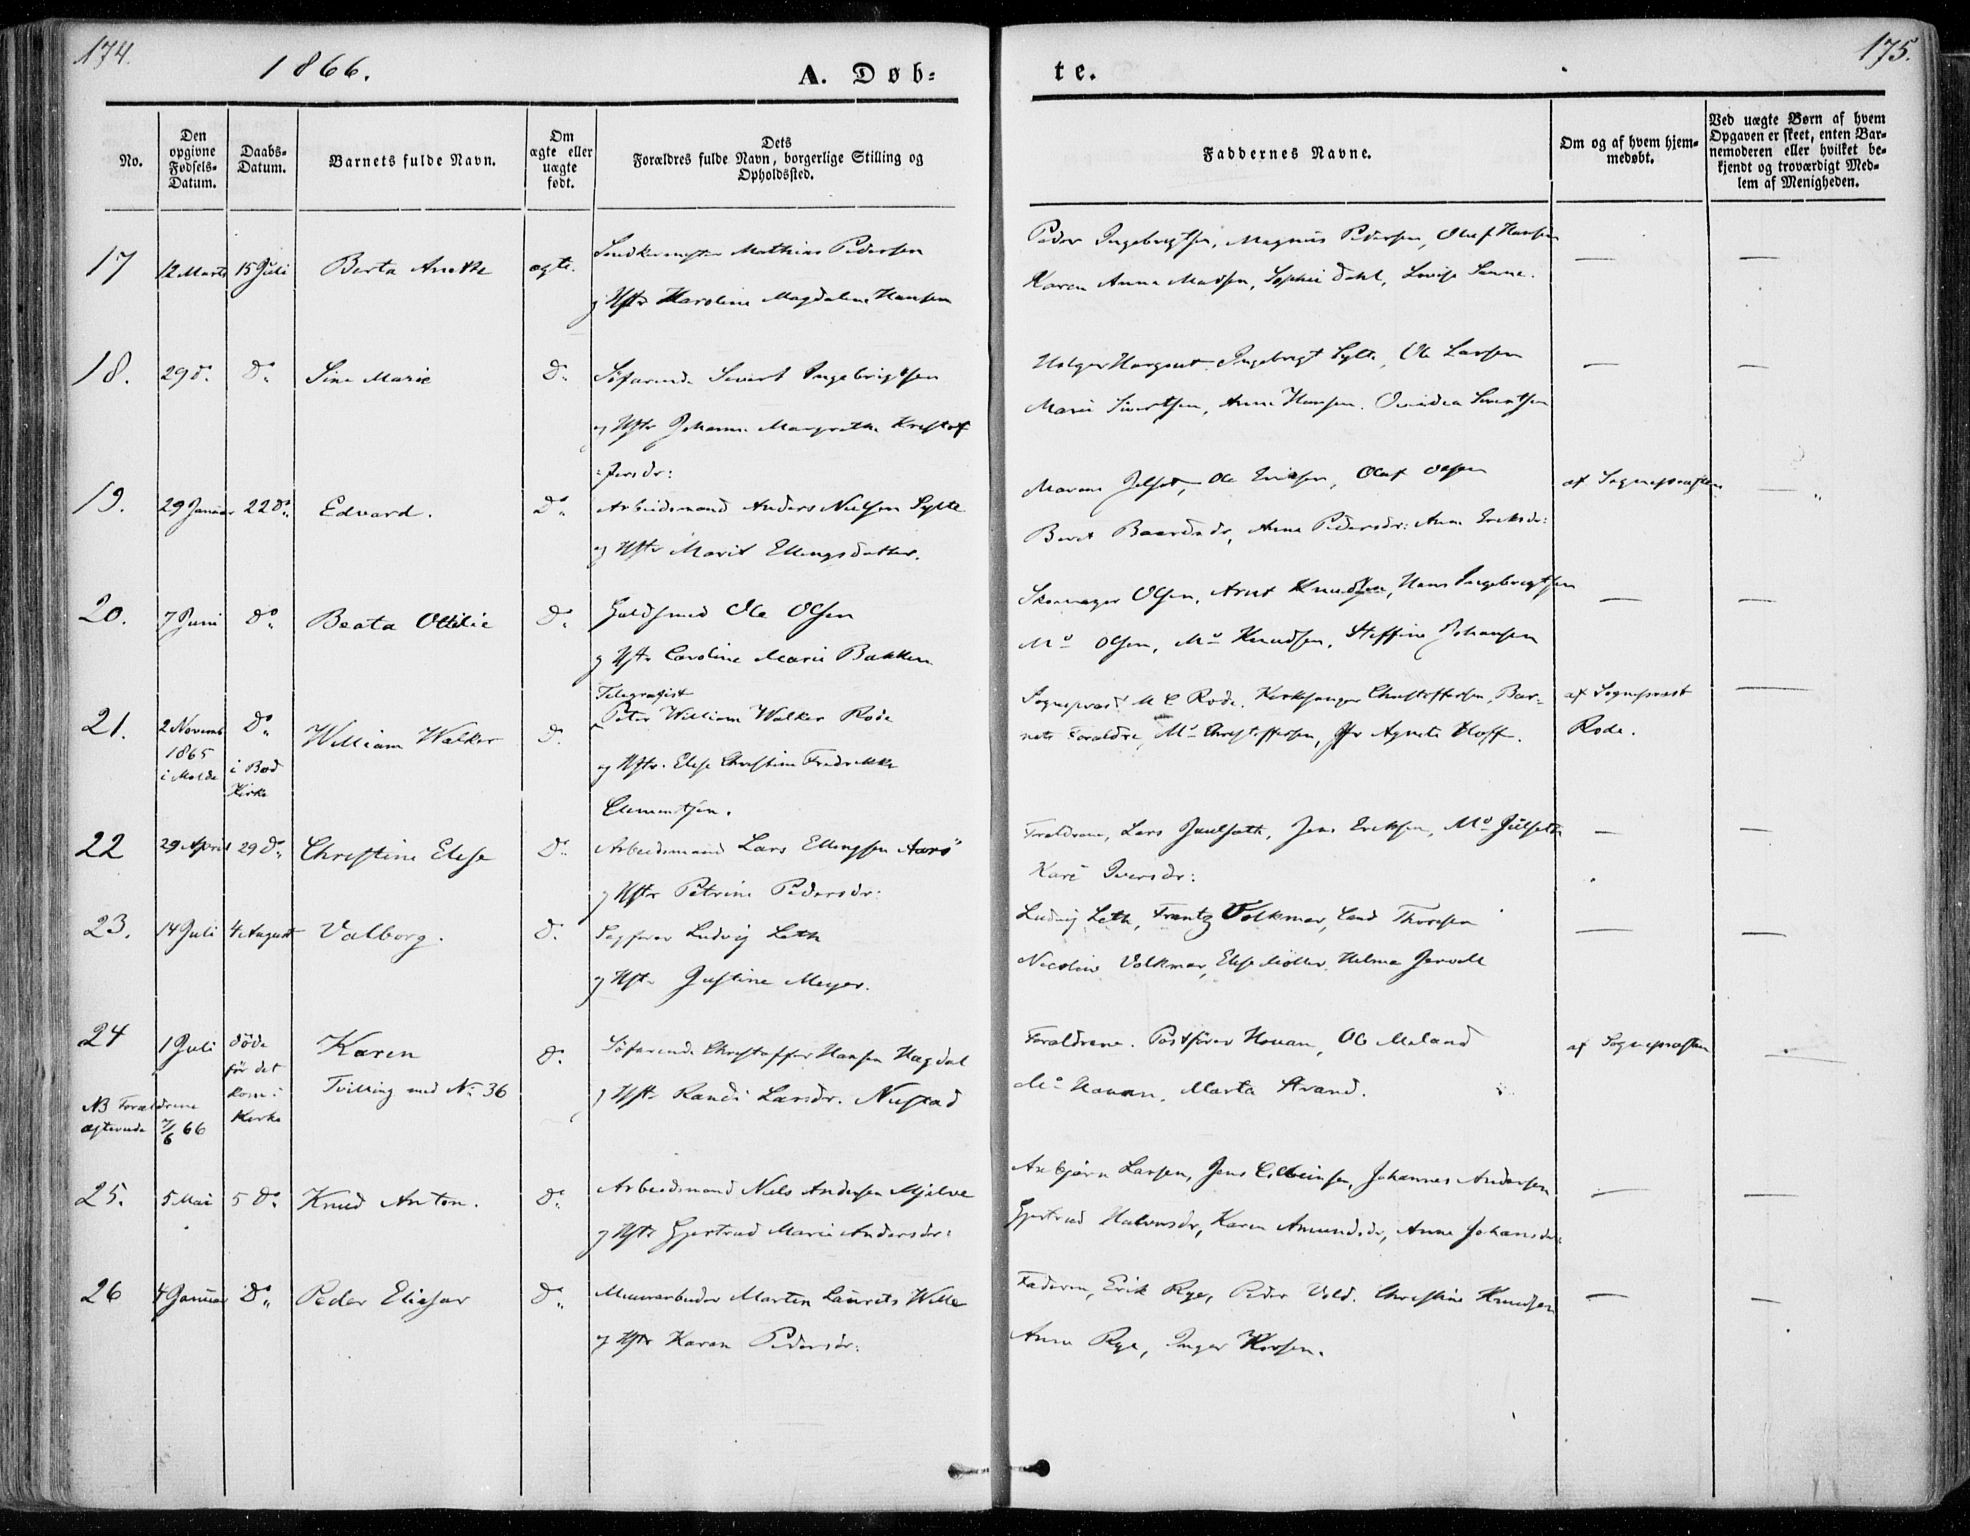 174.
1866.
A. Døb-
te.
175.
No.
Den opgivne Fødsels-Datum.
Daabs-Datum.
Barnets fulde Navn.
Om ægte eller uægte født.
Dets Forældres fulde Navn, borgerlige Stilling og Opholdssted.
Faddernes Navne.
Om og af hvem hjemmedøbt.
Ved uægte Børn af hvem Opgaven er skeet, enten Barnemoderen eller hvilket bekjendt og troværdigt Medlem af Menigheden.
17 12 Marts 15 Juli Berta Anette ægte. Mathias Pedersen
Peder Ingebrigtsen, Magnus Pedersen, Oluf Hansen
og Hstr Karoline Magdaline Hansen
Karen Anna Madsen, Sophie Dahl, Lovise Sanne.
18. 29 do. Do. Sine Marie Do. Søfarende Sivert Ingebrigtsen
Holger Ingebrigt Sylte, Ole Larsen
og Hstr Johanne Margrethe Kristof
Marie Sivertsen, Anne Hansen. Sivertsen
fersdr:
19. 29 Januar 22 Do. Edvard. Do. Arbeidsmand Anders Nielsen Sylte
Ole Eriksen, Oluf Olsen
af Sognepræsten
og Hstr Marit Ellingsdatter.
Berit Baardsdr, Anne Pedersdr: Anne Eriksdr:
20. 7 Juni Do. Beata Ottilie Do. Guldsmed Ole Olsen
Skomager Olsen, Arnt Knudsen, Hans Ingebrigtsen
og Hstr Caroline Marie Bakken
Md Olsen, Md Knudsen, Steffine Johansen
21. 2 Novemb 1865 i Molde
Do. i Bod Kirke
William Walker Do.
Telegrafist
Peter William Walker Rode
og Hstr. Elise Christine Fredrikke
Clementsen.
Sognepræst M C Rode, Kirksanger Christoffersen, Bar-
nets Forældre, Md Christoffersen, Jfr Agnete Hoff.
af Sognepræst
Rode.
22 29 April 29 Do. Christine Elise Do. Arbeidsmand Lars Ellingsen Aarø
Forældrene, Lars Julseth, Jens Eriksen, Md Julseth
og Hstr Petrine Pedersdr:
Kari Iversdr:
23. 14 Juli 4 August Valborg. Do. Sagfører Ludvig Leth
Ludvig Leth, Frantz Volkmar, Cand Thoresen
og Hstr Justine Meyer.
Nicoline Volkmar, Elise Møller, Helma Jervell
24 1 Juli døde før det kom i Kirke
Karen
Tvilling med No 36
Do. Søfarende Christoffer Hansen Hagdal
og Hstr Randi Larsdr. Nustad
Forældrene. Postfører Hovan, Ole Meland
Md Hovan, Marta Strand.
af Sognepræsten
NB Forældrene
ægteviede 7/6 66
25. 5 Mai 5 Do. Knud Anton. Do. Arbeidsmand Niels Andersen Mjelve
Asbjørn Larsen, Jens Johannes Andersen
og Hstr Gjertrud Marie Andersdr:
Gjertrud Halvorsdr, Karen Amundsdr, Anne Johansdr:
26 4 Januar Do. Peder Eliesar Do. Murarbeider Morten Laurits Wille
Faderen, Erik Rye, Peder Vold. Christine Knudsen
og Hstr Karen Pedersdr:
Anne Rye, Inger